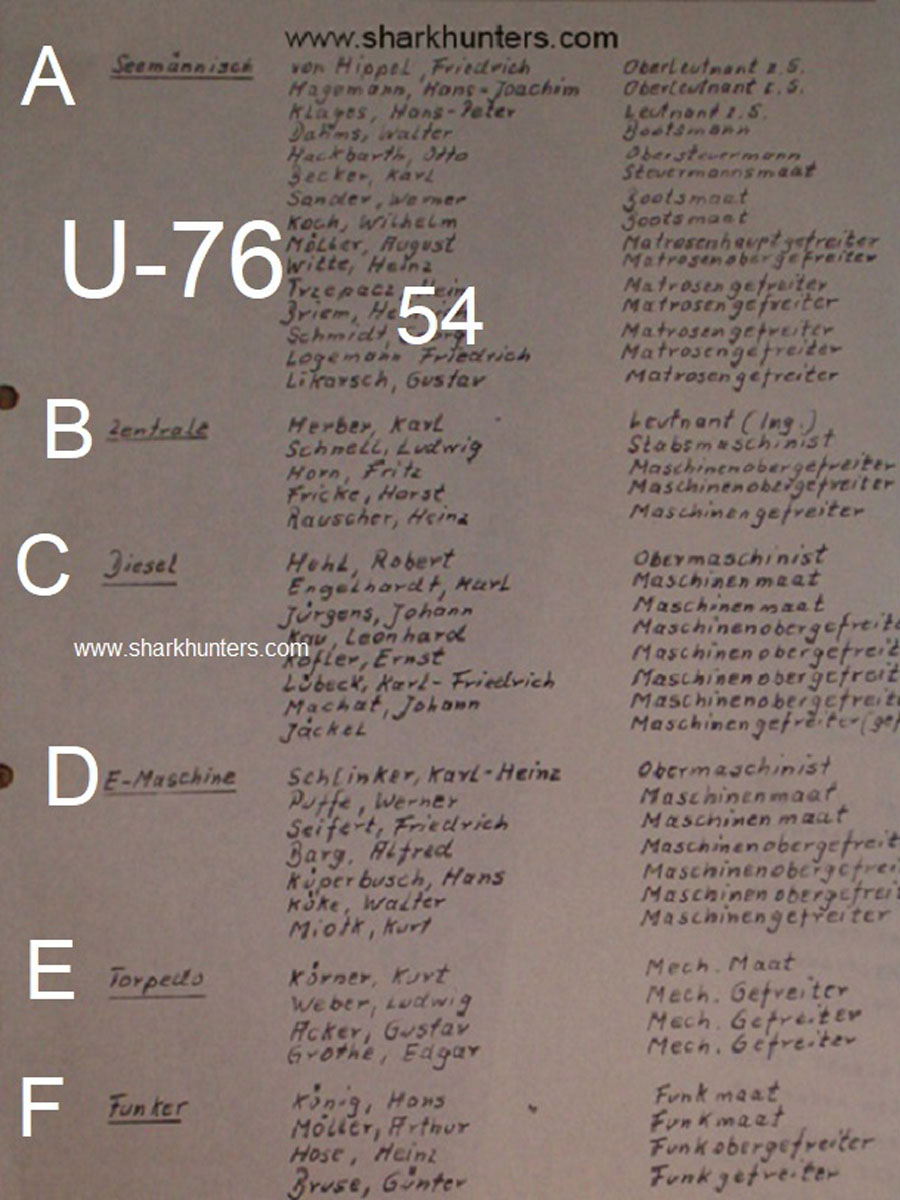 www.sharkhunters.com
A Seemännisch von Hippel, Friedrich Oberleutnant z.S.
Hagemann, Hans-Joachim Oberleutnant z.S.
Klages, Hans-Peter Leutnant z.S.
Dahms, Walter Bootsmann
Hackbarth, Otto Obersteuermann
Becker, Karl Steuermannsmaat
Sander, Werner Bootsmaat
Koch, Wilhelm Bootsmaat
U-76 Möller, August Matrosenhauptgefreiter
Witte, Heinz Matrosenobergefreiter
Trzepacz, Matrosengefreiter
54 Briem, Matrosengefreiter
Schmidt, Matrosengefreiter
Logemann Friedrich Matrosengefreiter
Likarsch, Gustav Matrosengefreiter
B Zentrale Herber, Karl Leutnant (Ing.)
Schnell, Ludwig Stabsmaschinist
Horn, Fritz Maschinenobergefreiter
Fricke, Horst Maschinenobergefreiter
Rauscher, Heinz Maschinengefreiter
C Diesel Hehl, Robert Obermaschinist
Engelhardt, Karl Maschinenmaat
Jürgens, Johann Maschinenmaat
Kau, Leonhard Maschinenobergefreite
www.sharkhunters.com
Kofler, Ernst Maschinenobergefreit
Lübeck, Karl-Friedrich Maschinenobergefreit
Machat, Johann Maschinenobergefreite
Jäckel Maschinengefreiter (gef
D E-Maschine Schlinker, Karl-Heinz Obermaschinist
Puffe, Werner Maschinenmaat
Seifert, Friedrich Maschinenmaat
Barg, Alfred Maschinenobergefreit
Küperbusch, Hans Maschinenobergefrei
Köke, Walter Maschinenobergefreit
Miotk, Kurt Maschinengefreiter
E Torpedo Körner, Kurt Mech. Maat
Weber, Ludwig Mech. Gefreiter
Acker, Gustav Mech. Gefreiter
Grothe, Edgar Mech. Gefreiter
F Funker König, Hans Funkmaat
Möller, Arthur Funkmaat
Hose, Heinz Funkobergefreiter
Bruse, Günter Funkgefreiter